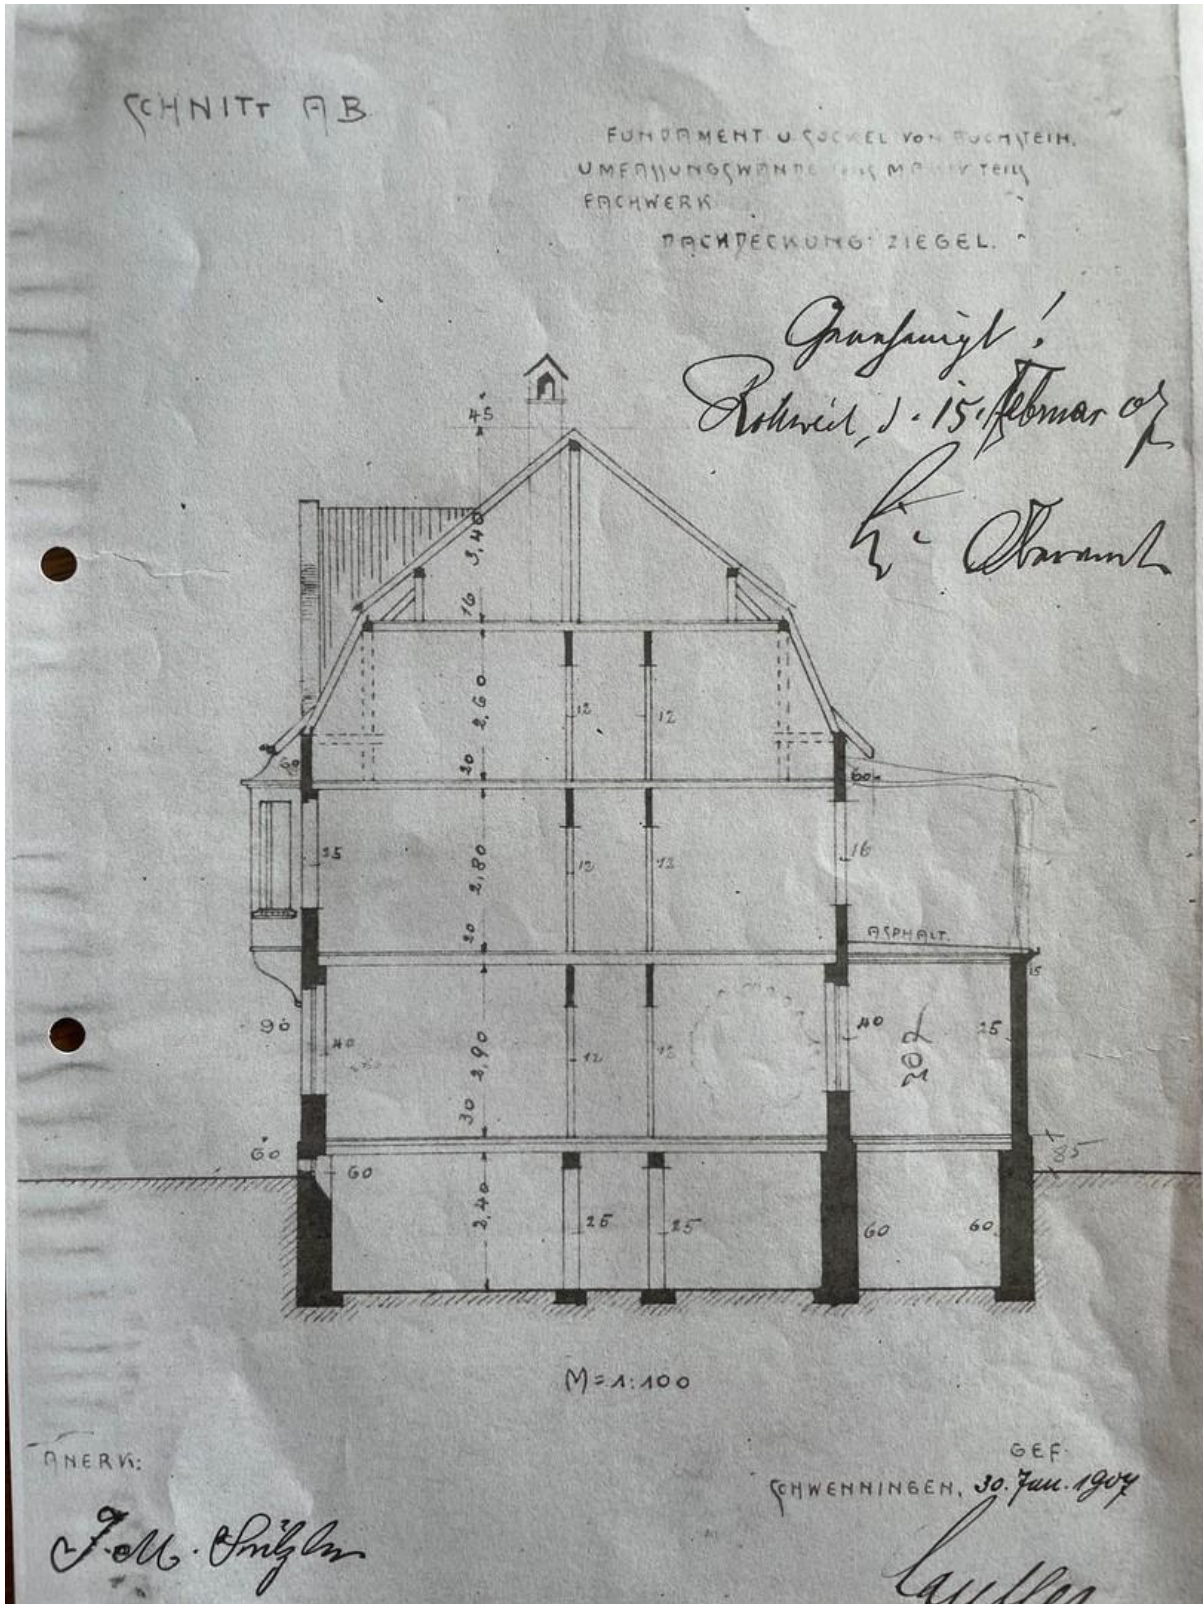 SCHNITT AB
FUNDAMENT U. SOCKEL VON BUCHSTEIN.
UMFASSUNGSWÄNDE MASSIV TEILS
FACHWERK
DACHDECKUNG: ZIEGEL.
Genehmigt!
Rottweil, d. 15. Februar 07
K. Oberamt
45
3,40
16
2,60
12
12
20
60
60
25
2,80
12
12
16
20
ASPHALT.
15
90
40
2,90
12
12
40
25
30
60
60
85
2,40
25
25
60
60
M=1:100
ANERK:
GEF.
SCHWENNINGEN, 30. Jan. 1907
J. M.